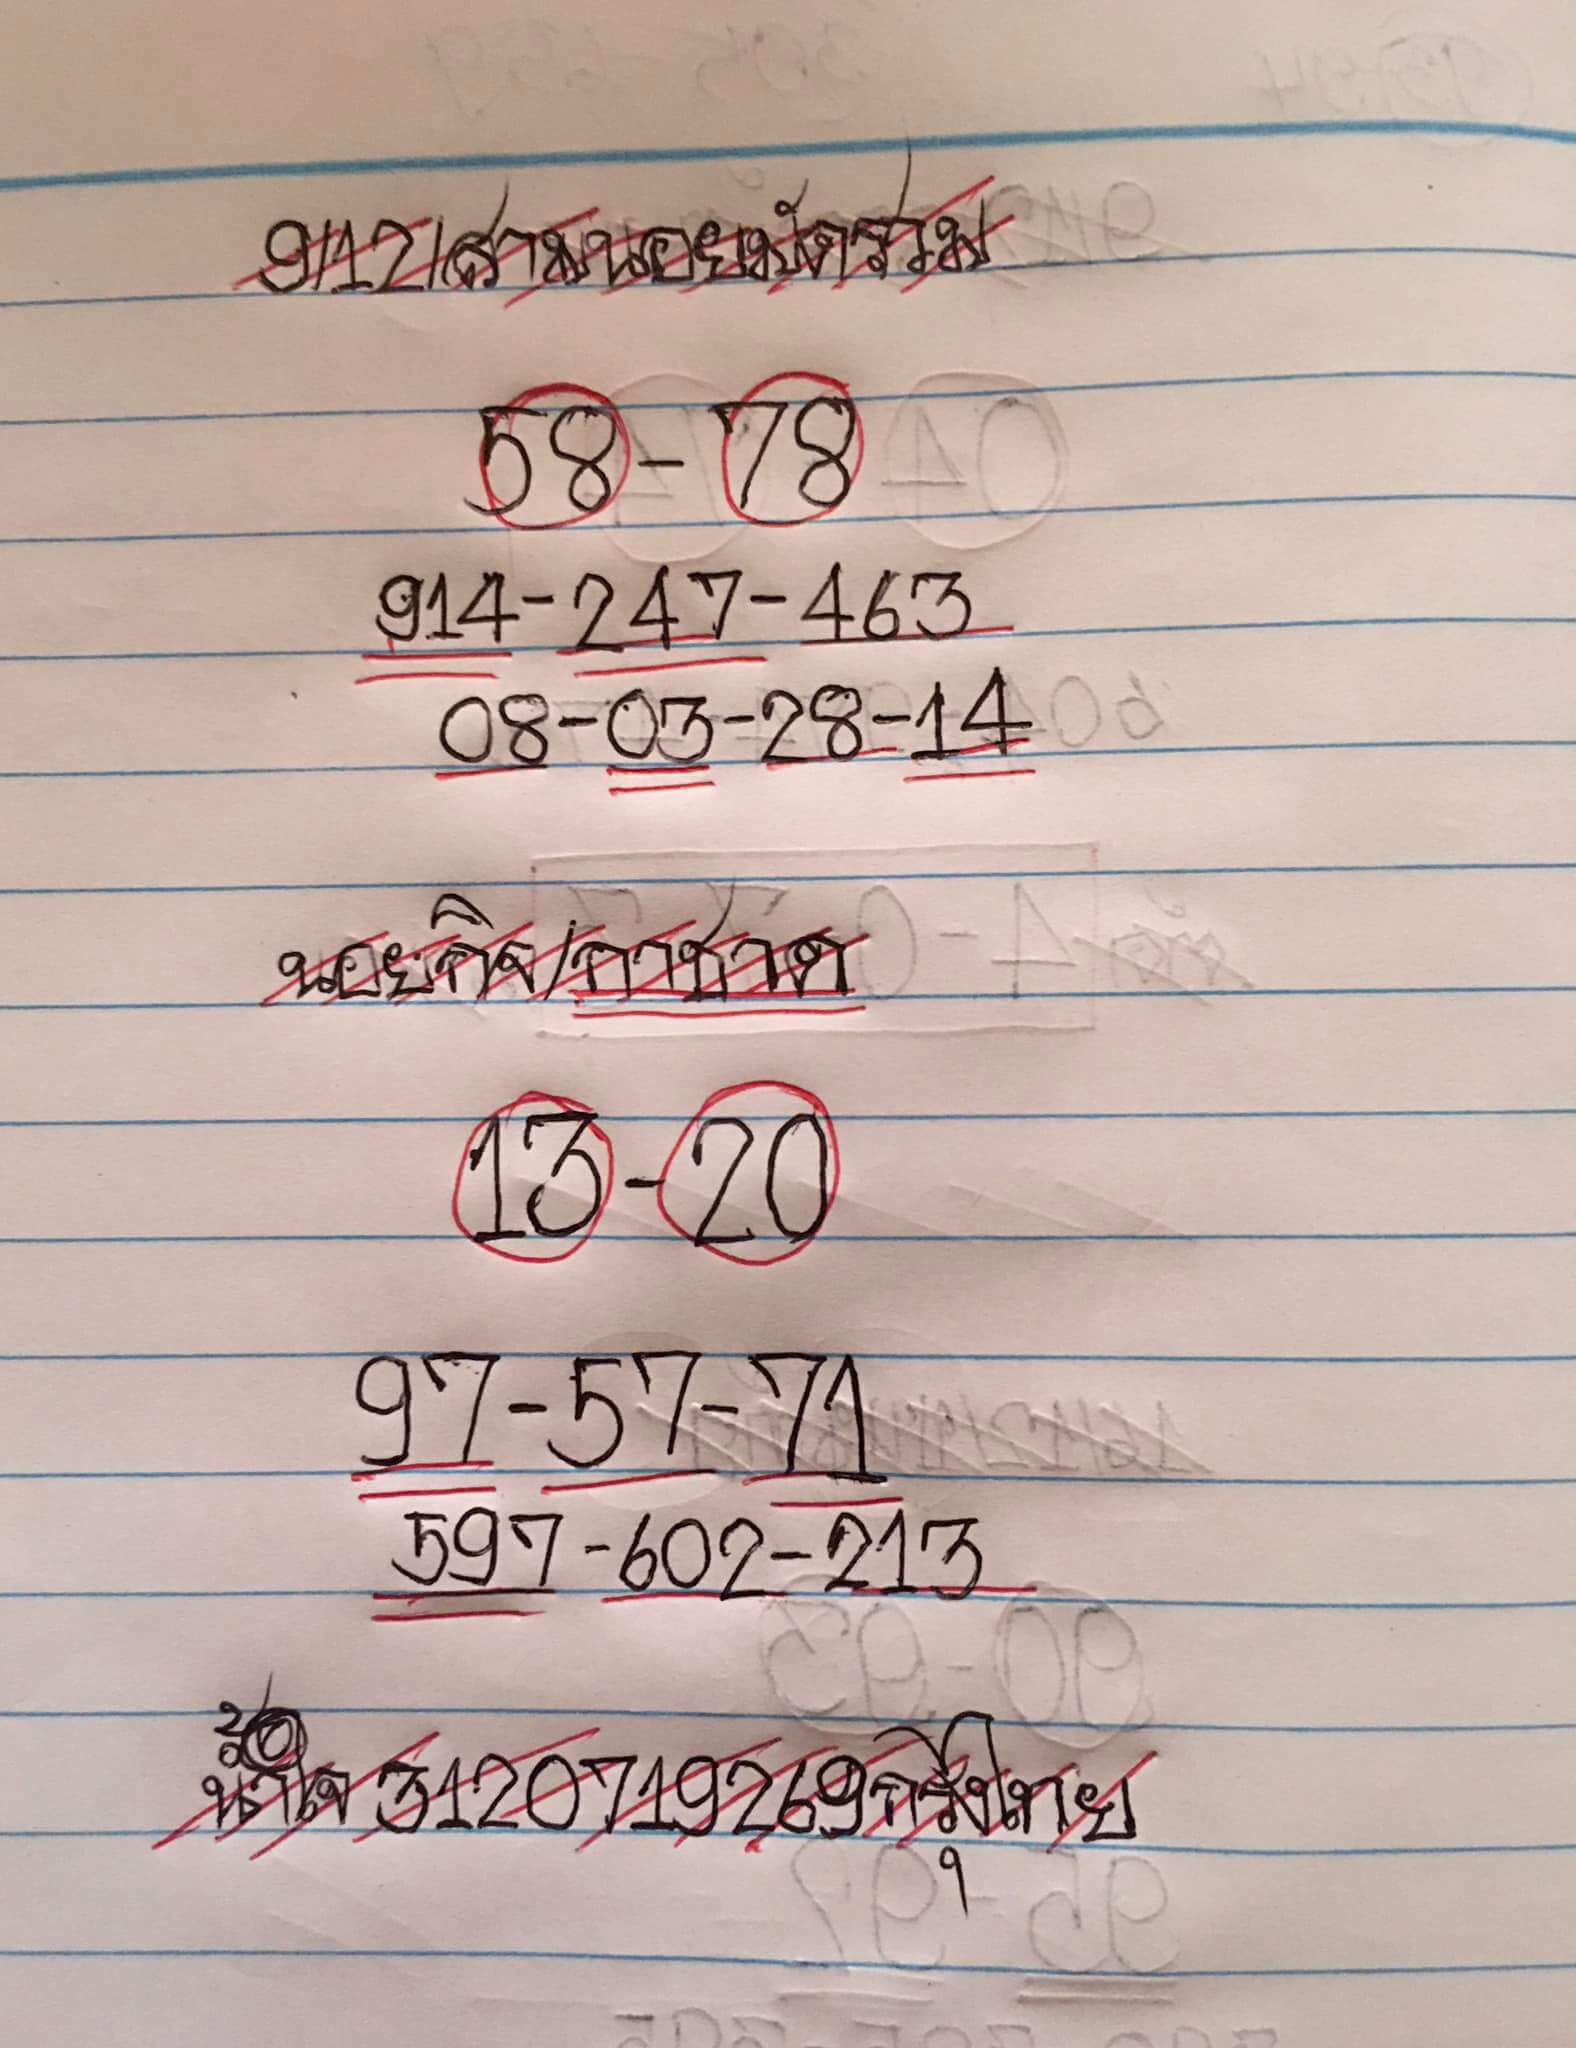 9/12/ส่ามนอยมัดร่วม
58-78
914-247-463
08-03-28-14
นอยกิจ/กาชาด
13-20
97-57-71
597-602-213
3120719269กรุงไทย